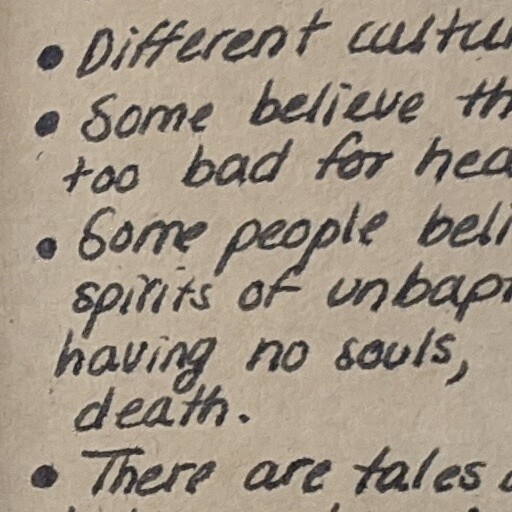 • Different cultu
• Some believe th
too bad for hea
• Some people beli
spirits of unbap
having no souls,
death.
• There are tales